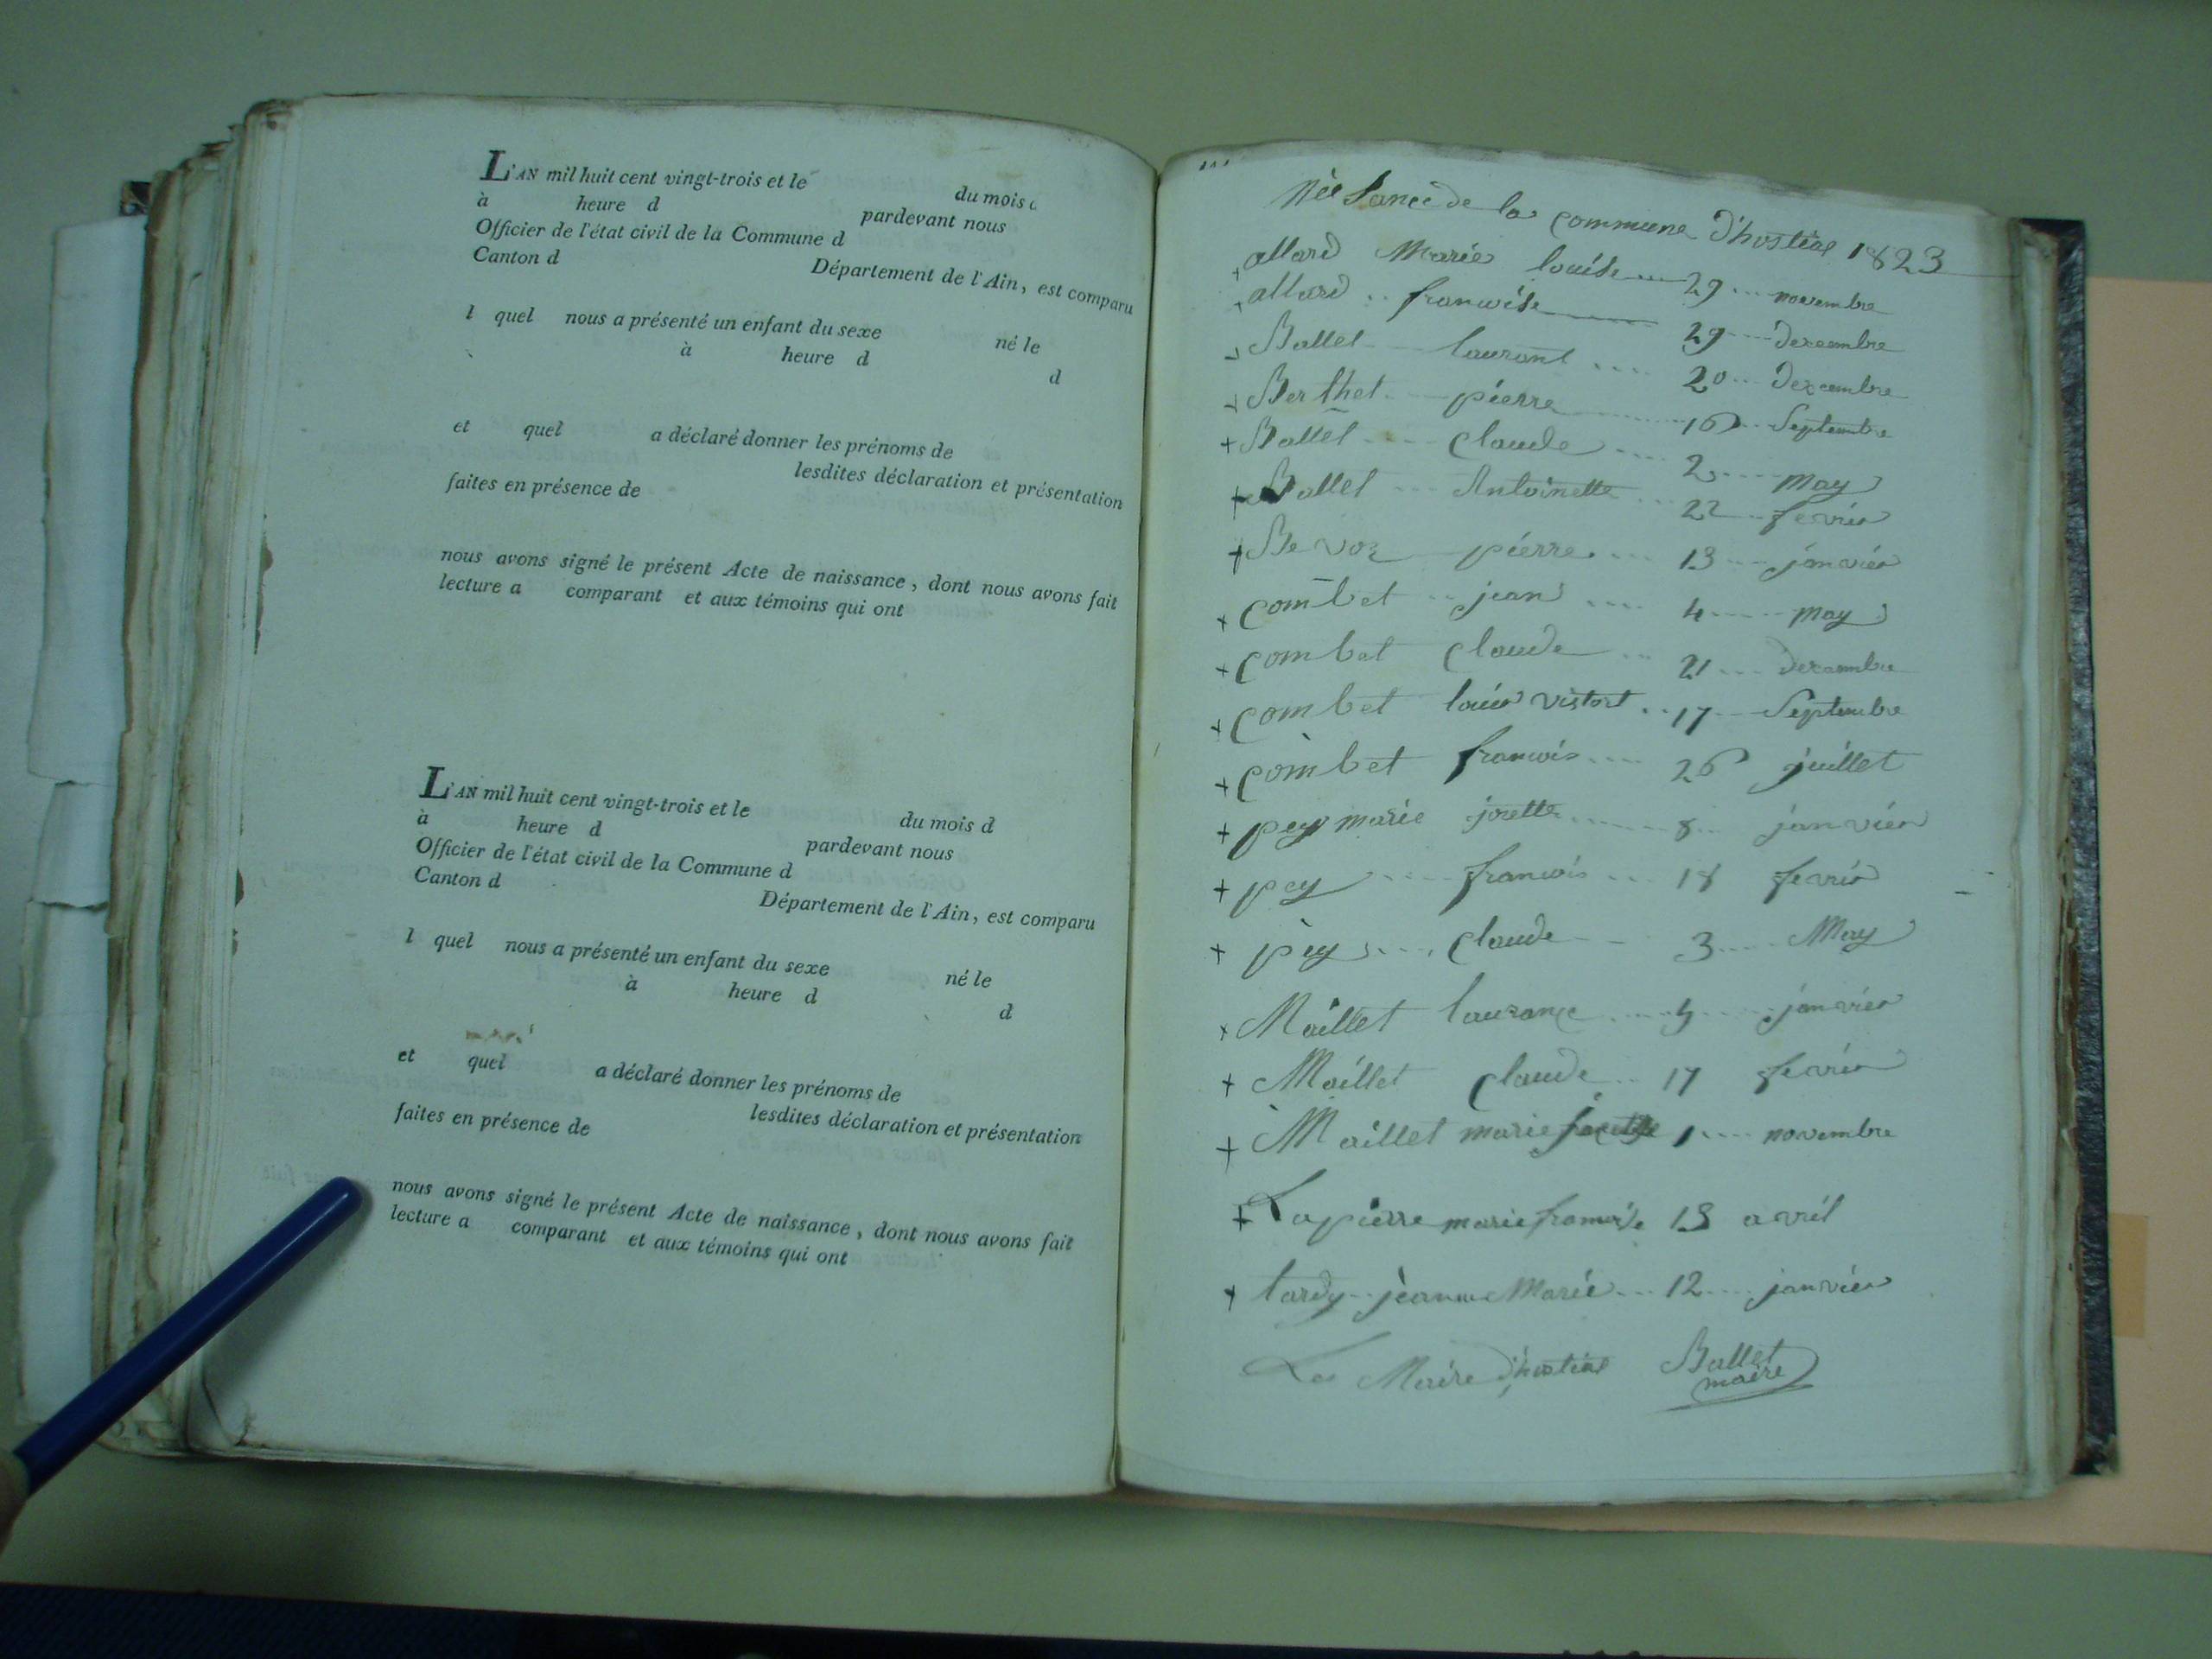 L'AN mil huit cent vingt-trois et le du mois d
à heure d pardevant nous
Officier de l'état civil de la Commune d
Canton d Département de l'Ain, est comparu
l quel nous a présenté un enfant du sexe né le
à heure d d
et quel a déclaré donner les prénoms de
lesdites déclaration et présentation
faites en présence de
nous avons signé le présent Acte de naissance, dont nous avons fait
lecture a comparant et aux témoins qui ont
L'AN mil huit cent vingt-trois et le du mois d
à heure d pardevant nous
Officier de l'état civil de la Commune d
Canton d Département de l'Ain, est comparu
l quel nous a présenté un enfant du sexe né le
à heure d d
et quel a déclaré donner les prénoms de
lesdites déclaration et présentation
faites en présence de
nous avons signé le présent Acte de naissance, dont nous avons fait
lecture a comparant et aux témoins qui ont
de la commune d'hostias 1823
+ allard Marie louise 29 novembre
+ allard francoise 29 decembre
+ Ballet laurant 20 decembre
+ Berthet pierre 16 Septembre
+ Ballet Claude 2 may
+ Ballet Antoinette 22 fevrier
+ Bevoz pierre 13 janvier
+ combet jean 4 may
+ combet Claude 21 decembre
+ combet louis victort 17 Septembre
+ combet francois 26 juillet
+ pey marie josette 8 janvier
+ pey francois 18 fevrier
+ pey Claude 3 May
+ Maillet lauranse janvier
+ Maillet Claude 17 fevrier
+ Maillet marie 1 novembre
+ Lapierre marie francoise 13 avril
+ tardy jeanne Marie 12 janvier
Le Maire d'hostias Ballet
maire